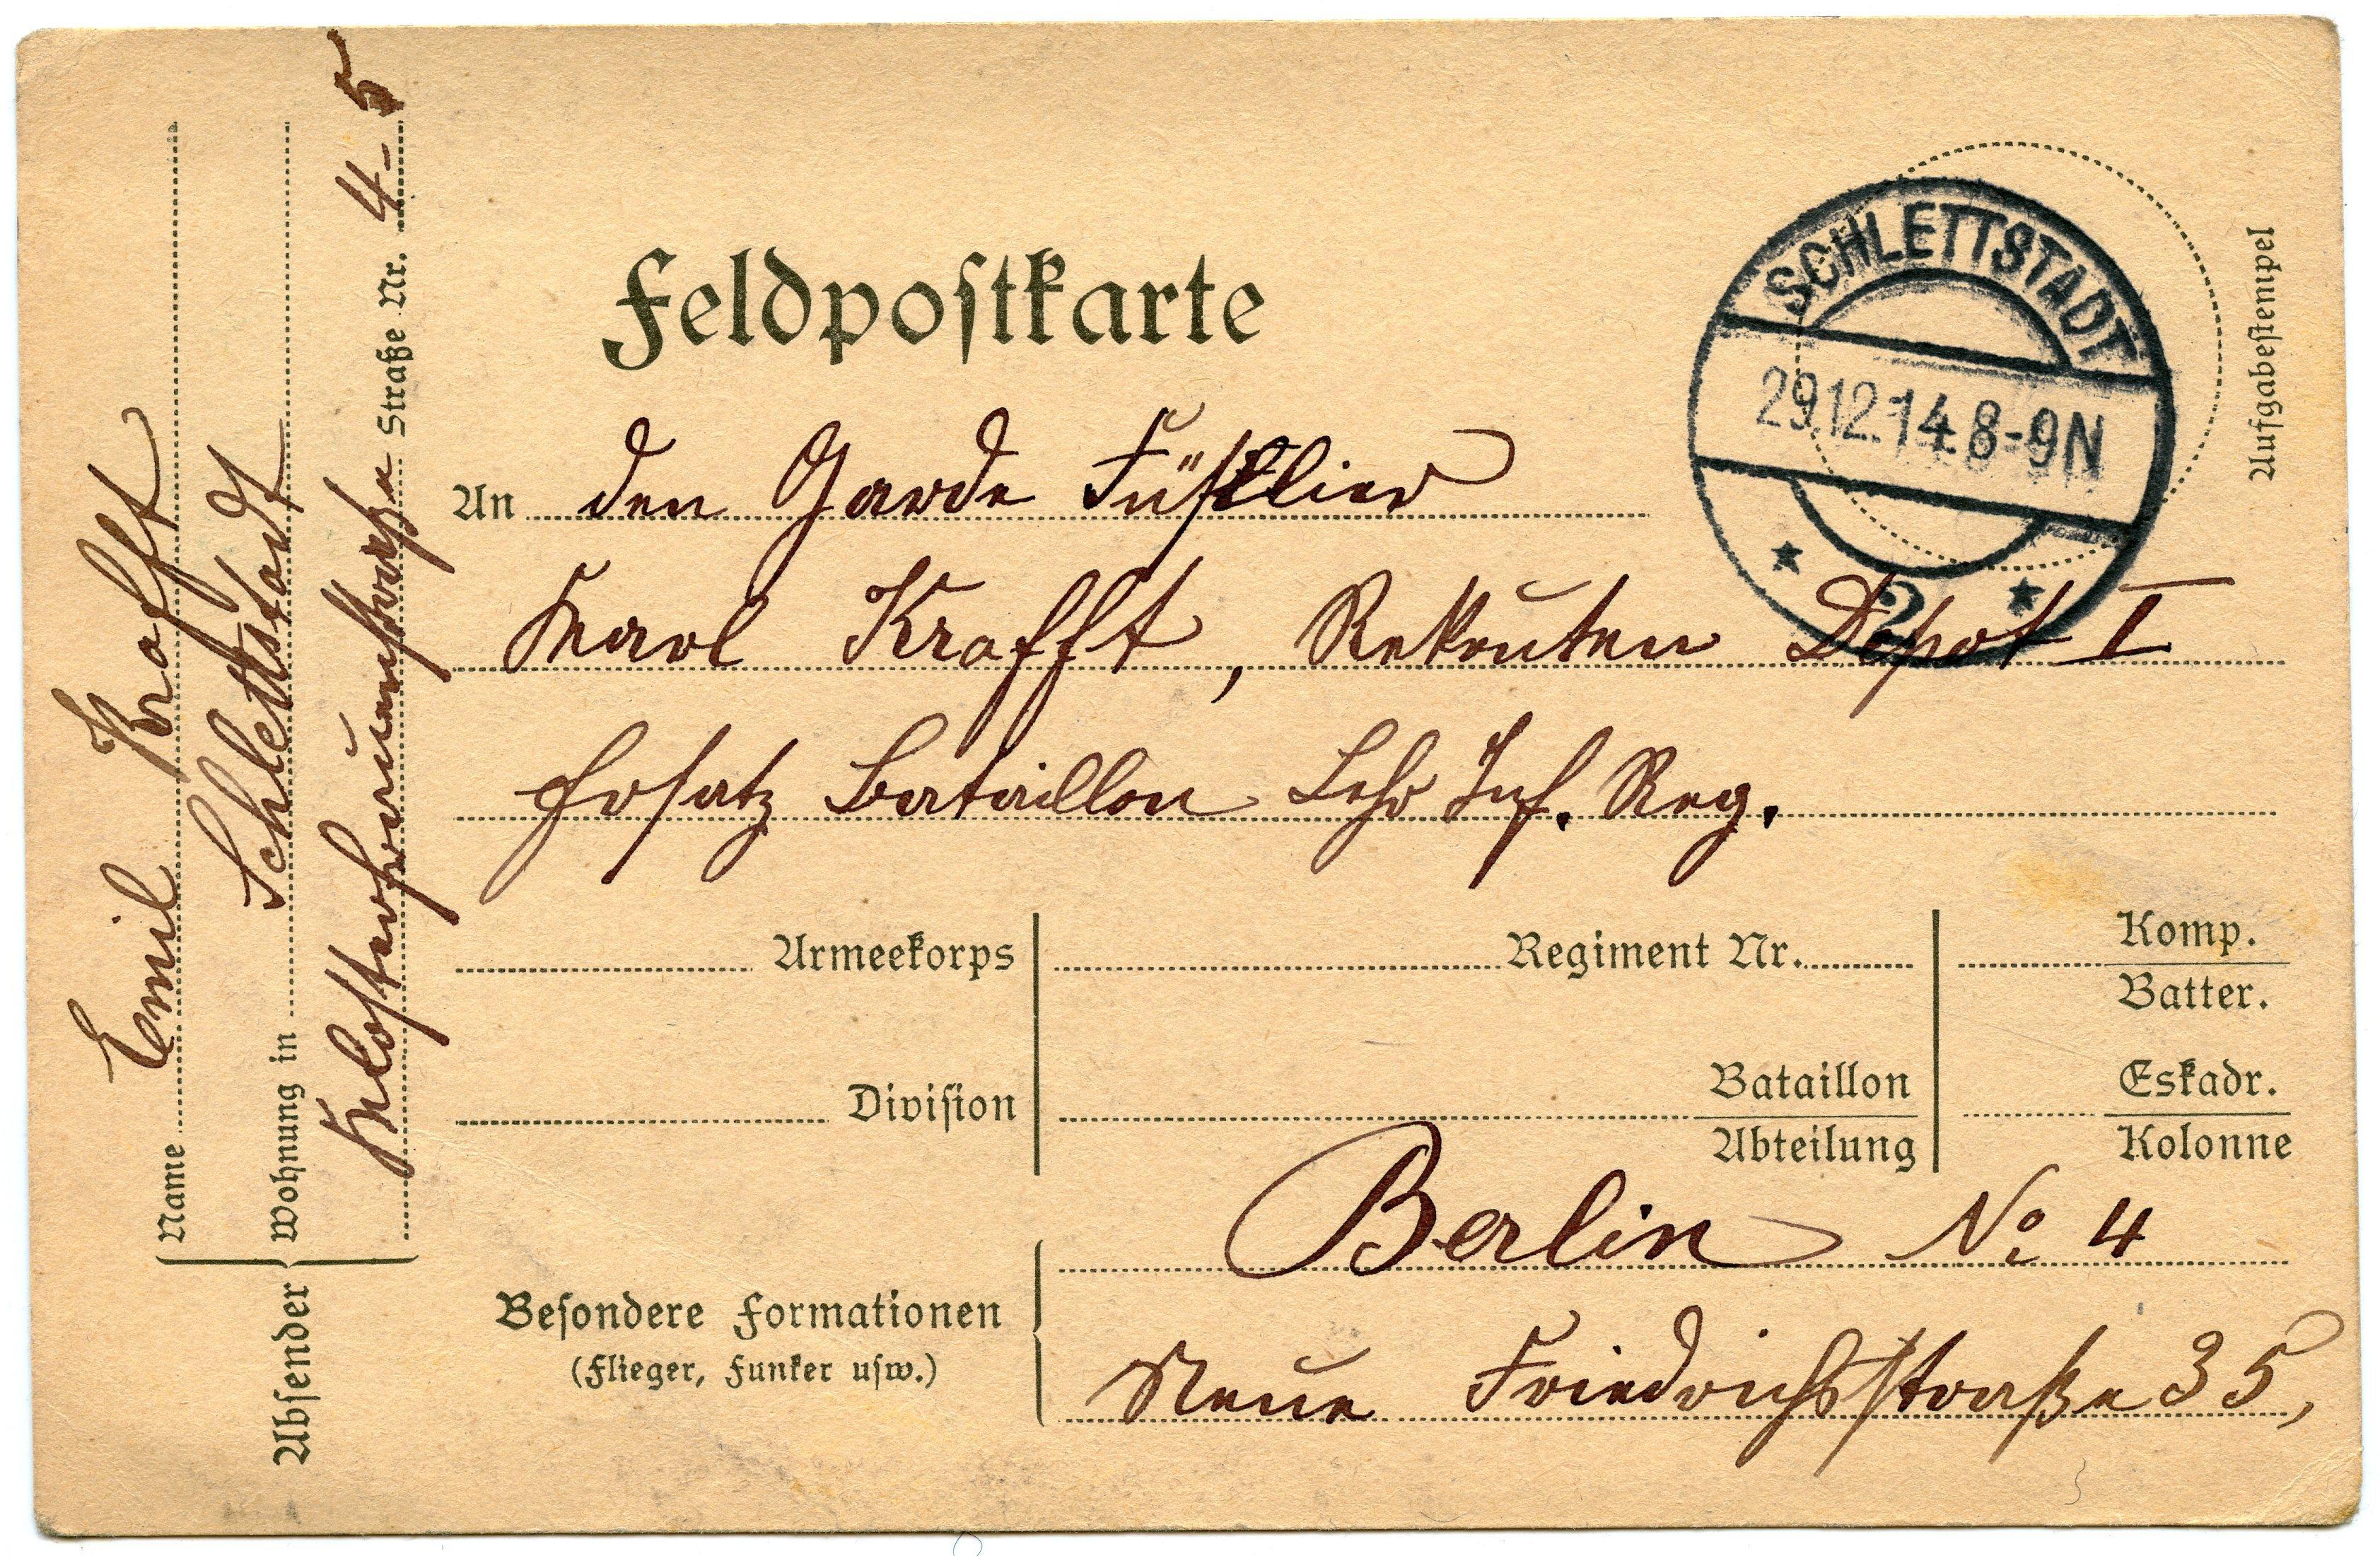 Feldpostkarte
SCHLETTSTADT
29.12.14.8-9N
* 2 *
Aufgabestempel
An den Garde Füsilier
Karl Krafft, Rekruten Depot I
Ersatz Bataillon Lehr Inf. Reg.
Armeekorps
Regiment Nr.
Komp.
Batter.
Division
Bataillon
Abteilung
Eskadr.
Kolonne
Berlin No 4
Besondere Formationen
(Flieger, Funker usw.)
Neue Friedrichstraße 35,
Absender
Name Emil Krafft
Wohnung in Schlettstadt
Straße Nr. 4-5